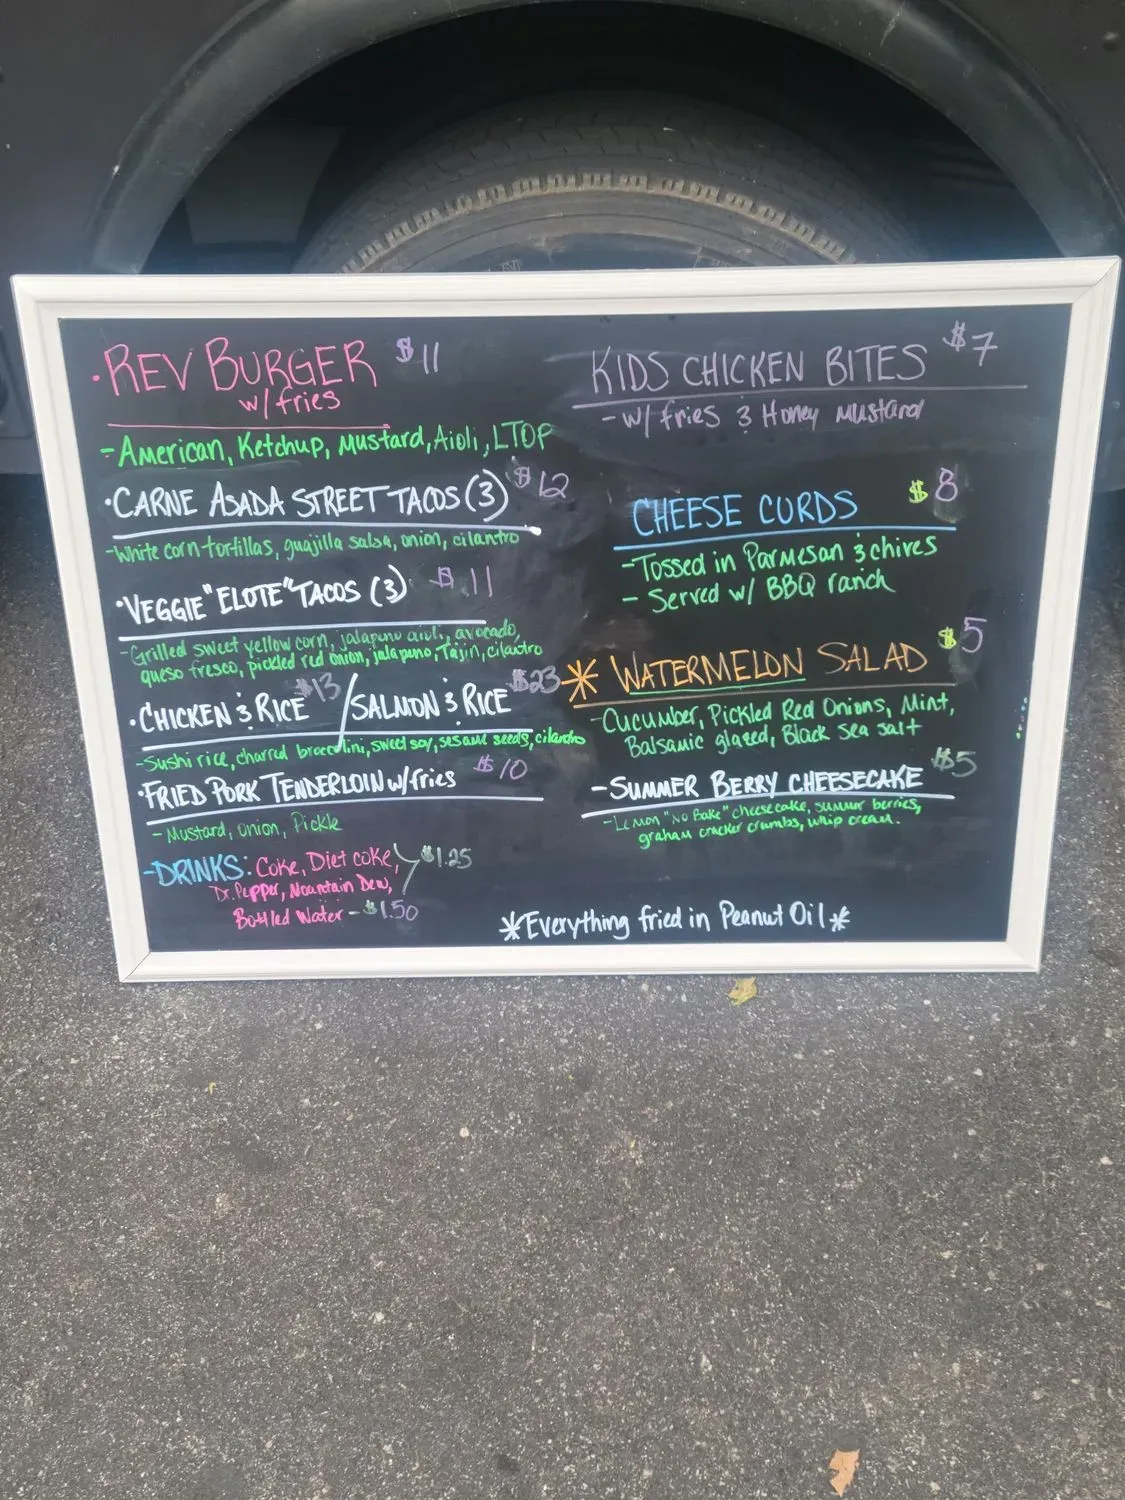 ·REV BURGER $11
w/ fries
-American, Ketchup, Mustard, Aioli, LTOP
·CARNE ASADA STREET TACOS (3) $12
-White corn tortillas, guajilla salsa, onion, cilantro
·VEGGIE "ELOTE" TACOS (3) $11
-Grilled sweet yellow corn, jalapeno aioli, avocado,
queso fresco, pickled red onion, jalapeno, Tajin, cilantro
·CHICKEN & RICE $13 / SALMON & RICE $23
-Sushi rice, charred broccolini, sweet soy, sesame seeds, cilantro
·FRIED PORK TENDERLOIN w/ fries $10
-Mustard, onion, Pickle
-DRINKS: Coke, Diet coke, $1.25
Dr. Pepper, Mountain Dew,
Bottled Water - $1.50
KIDS CHICKEN BITES $7
-w/ fries & Honey Mustard
CHEESE CURDS $8
-Tossed in Parmesan & chives
- Served w/ BBQ ranch
* WATERMELON SALAD $5
-Cucumber, Pickled Red Onions, Mint,
Balsamic glazed, Black sea salt
-SUMMER BERRY CHEESECAKE $5
-Lemon "No Bake" cheesecake, summer berries,
graham cracker crumbs, whip cream.
*Everything fried in Peanut Oil*